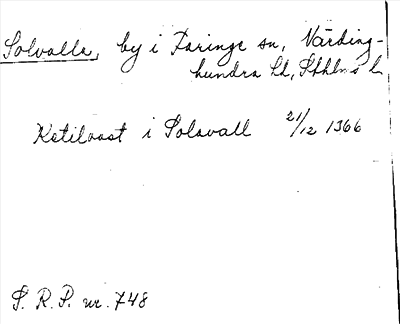 Solvalla, by i Faringe sn, Närding-
hundra hd, Sthlms l.
Ketilvast i Solavall 21/12 1366
S. R. P. nr. 748